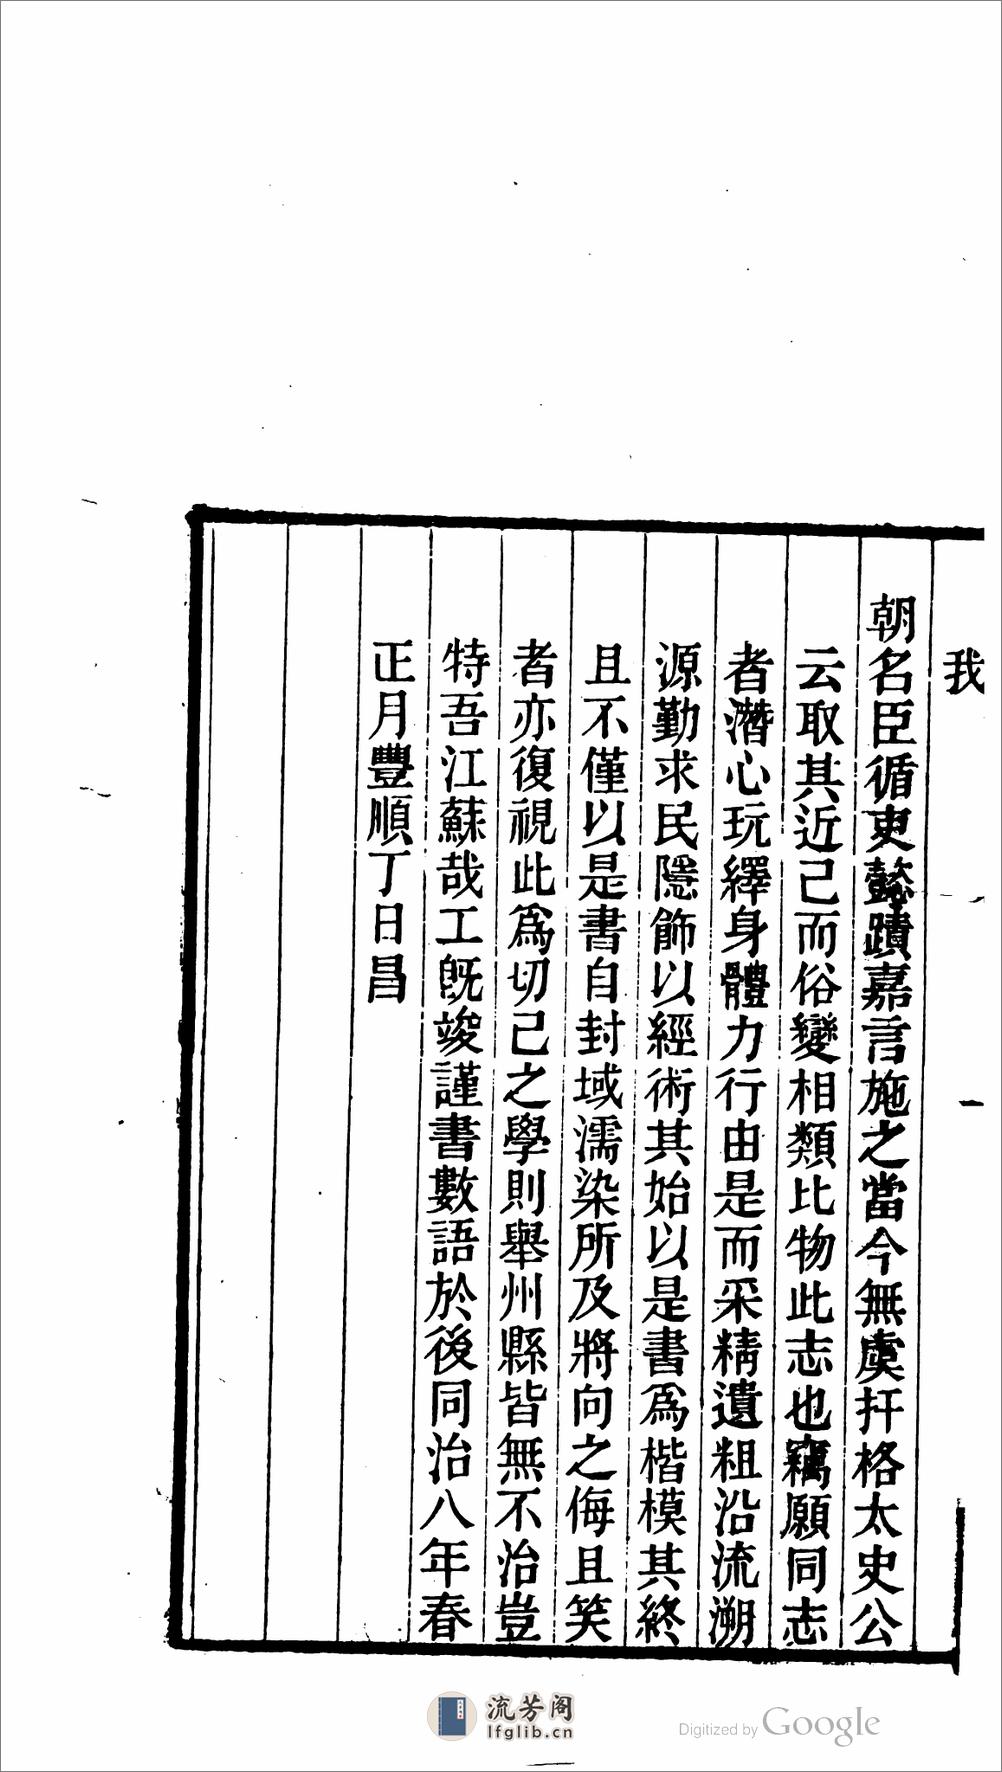 我
朝名臣循吏懿蹟嘉言施之當今無虞扞格太史公
云取其近己而俗變相類比物此志也竊願同志
者潛心玩繹身體力行由是而采精遺粗沿流溯
源勤求民隱飾以經術其始以是書爲楷模其終
且不僅以是書自封域濡染所及將向之侮且笑
者亦復視此爲切己之學則舉州縣皆無不治豈
特吾江蘇哉工旣竣謹書數語於後同治八年春
正月豐順丁日昌
流芳阁
lfglib.cn
Digitized by Google